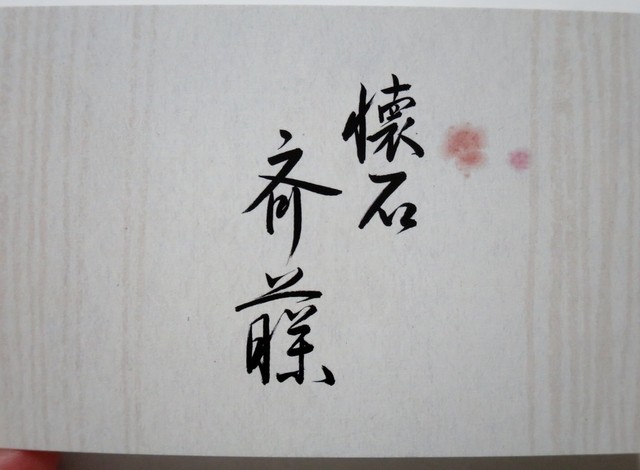 懐石
斉藤